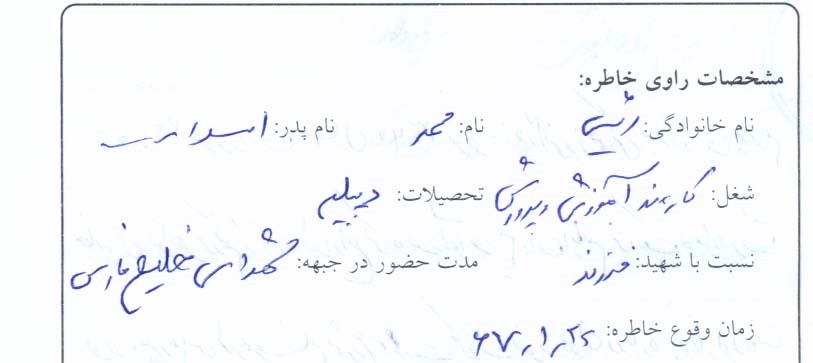 مشخصات راوی خاطره:
نام خانوادگی: نام: محمد نام پدر: اسداله
شغل: کارمند آموزش و پرورش تحصیلات: دیپلم
نسبت با شهید: فرزند مدت حضور در جبهه: شهدای خلیج فارس
زمان وقوع خاطره: